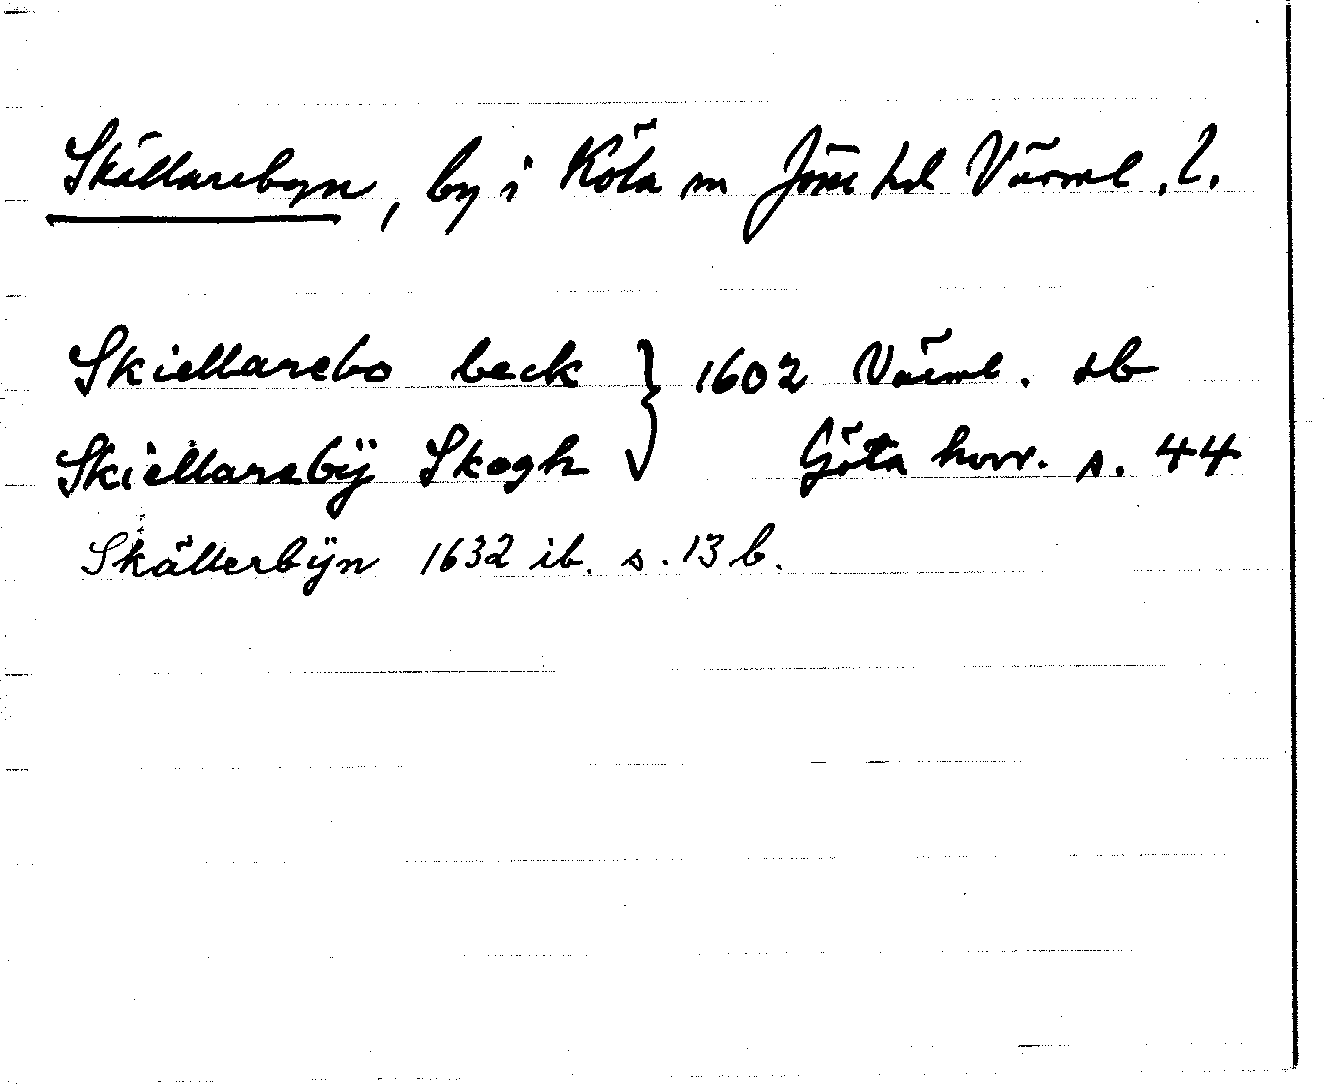 Skällarebyn, by i Köla sn Jösse hd Värml. l.
Skiellarebo beck } 1602 Värml. db
Skiellarebÿ Skogh Göta hovr. s. 44
Skällerbÿn 1632 ib. s. 13 b.